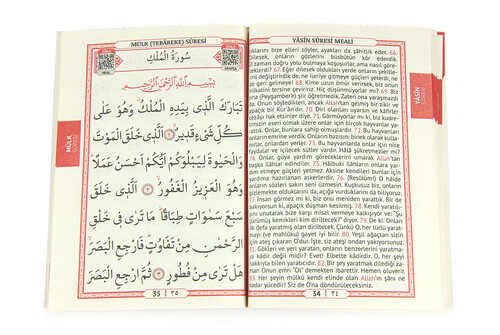 MÜLK (TEBÂREKE) SÛRESİ
سُورَةُ الْمُلْكِ
بِسْمِ اللّٰهِ الرَّحْمٰنِ الرَّحِيمِ
تَبَارَكَ الَّذ۪ى بِيَدِهِ الْمُلْكُ وَهُوَ عَلٰى
كُلِّ شَىْءٍ قَد۪يرٌ ۞ اَلَّذ۪ى خَلَقَ الْمَوْتَ
وَالْحَيٰوةَ لِيَبْلُوَكُمْ اَيُّكُمْ اَحْسَنُ عَمَلًا
وَهُوَ الْعَز۪يزُ الْغَفُورُ ۞ اَلَّذ۪ى خَلَقَ
سَبْعَ سَمٰوَاتٍ طِبَاقًا مَا تَرٰى ف۪ى خَلْقِ
الرَّحْمٰنِ مِنْ تَفَاوُتٍ فَارْجِعِ الْبَصَرَ
هَلْ تَرٰى مِنْ فُطُورٍ ۞ ثُمَّ ارْجِعِ الْبَصَرَ
35 | ٣٥
MÜLK
SÛRESİ
YÂSÎN SÛRESİ MEALİ
ıklarını bize elleri söyler, ayakları da şâhitlik eder. 66.
O zaman doğru yolu bulmaya koşuşurlar, ama nasıl göre-
eklerdi? 67. Eğer dilesek oldukları yerde onların şekille-
ini değiştirirdik de, ne ileriye gitmeye güçleri yeterdi, ne
e geri dönmeye! 68. Kime uzun ömür verirsek, biz onun
ilkatini tersine çeviririz. Hiç düşünmüyorlar mı? 69. Biz
na (Peygamber'e) şiir öğretmedik. Zaten ona yaraşmazdı
a. Onun söyledikleri, ancak Allah'tan gelmiş bir zikir ve
apaçık bir Kur'ân'dır. 70. Diri olanları uyarsın ve kâfirler
azabı hak etsinler diye. 71. Görmüyorlar mı ki, biz kudre-
imizin eseri olmak üzere onlar için birçok hayvanlar ya-
rattık. Onlar, bunlara sahip olmuşlardır. 72. Bu hayvanları
onların emrine verdik. Onların bazısını binek olarak kulla-
nırlar, 73. Bu hayvanlarda onlar için nice
faydalar ve içilecek sütler vardır. Hâlâ şükretmezler mi?
74. Onlar, güya yardım göreceklerini umarak Allah'tan
başka ilâhlar edindiler. 75. Hâlbuki ilâhların onlara yardım
etmeye güçleri yetmez. Aksine kendileri bunlar için
yardıma hazırlanan askerlerdir. 76. (Resûlüm!) O hâlde
onların sözleri sakın seni üzmesin. Kuşkusuz biz, onların
gizlemekte olduklarını da, açığa vurduklarını da biliyoruz.
77. İnsan görmez mi ki, biz onu meniden yarattık. Bir de
bakıyorsun ki, apaçık düşman kesilmiş. 78. Kendi yaratılı-
şını unutarak bize karşı misal vermeye kalkışıyor ve: "Şu
çürümüş kemikleri kim diriltecek?" diyor. 79. De ki: Onları
ilk defa yaratmış olan diriltecek. Çünkü O, her türlü yarat-
mayı (ve mahlûku) gayet iyi bilir. 80. Yeşil ağaçtan sizin
için ateş çıkaran O'dur. İşte, siz ateşi ondan yakıyorsunuz.
81. Gökleri ve yeri yaratan, onların benzerlerini yaratma-
ya kâdir değil midir? Evet! Elbette kâdirdir. O, her şeyi
hakkıyla bilen yaratıcıdır. 82. Bir şey yaratmak dilediği za-
man Onun emri "Ol" demekten ibarettir. Hemen oluverir.
83. Her şeyin mülkü kendi elinde olan Allah'ın şânı ne
kadar yücedir! Siz de O'na döndürüleceksiniz.
34 | ٣٤
YÂSÎN
SÛRESİ